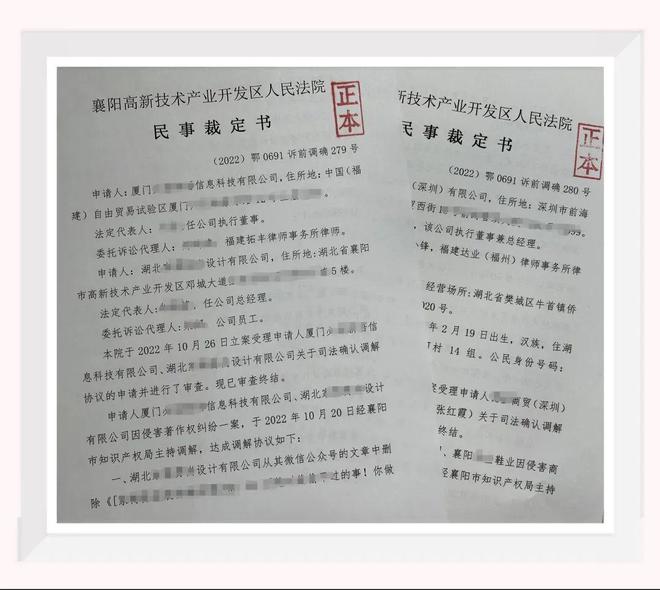 襄阳高新技术产业开发区人民法院
正本
民事裁定书
（2022）鄂0691诉前调确279号
申请人：厦门 信息科技有限公司，住所地：中国（福
建）自由贸易试验区厦门
法定代表人： 任公司执行董事。
委托诉讼代理人： 福建拓丰律师事务所律师。
申请人：湖北 设计有限公司，住所地：湖北省襄阳
市高新技术产业开发区邓城大道 5楼。
法定代表人： ，任公司总经理。
委托诉讼代理人： 公司员工。
本院于2022年10月26日立案受理申请人厦门 信
息科技有限公司、湖北 设计有限公司关于司法确认调解
协议的申请并进行了审查。现已审查终结。
申请人厦门 信息科技有限公司、湖北 设计
有限公司因侵害著作权纠纷一案，于2022年10月20日经襄阳
市知识产权局主持调解，达成调解协议如下：
一、湖北 设计有限公司从其微信公众号的文章中删
除《[ 过的事！你做
新技术产业开发区人民法院
正本
民事裁定书
（2022）鄂0691诉前调确280号
（深圳）有限公司，住所地：深圳市前海
西街
，该公司执行董事兼总经理。
锋，福建达业（福州）律师事务所律
经营场所：湖北省樊城区牛首镇侨
020号。
年2月19日出生，汉族，住湖
村14组。公民身份号码：
受理申请人 商贸（深圳）
张红霞）关于司法确认调解
终结。
、襄阳 鞋业因侵害商
经襄阳市知识产权局主持